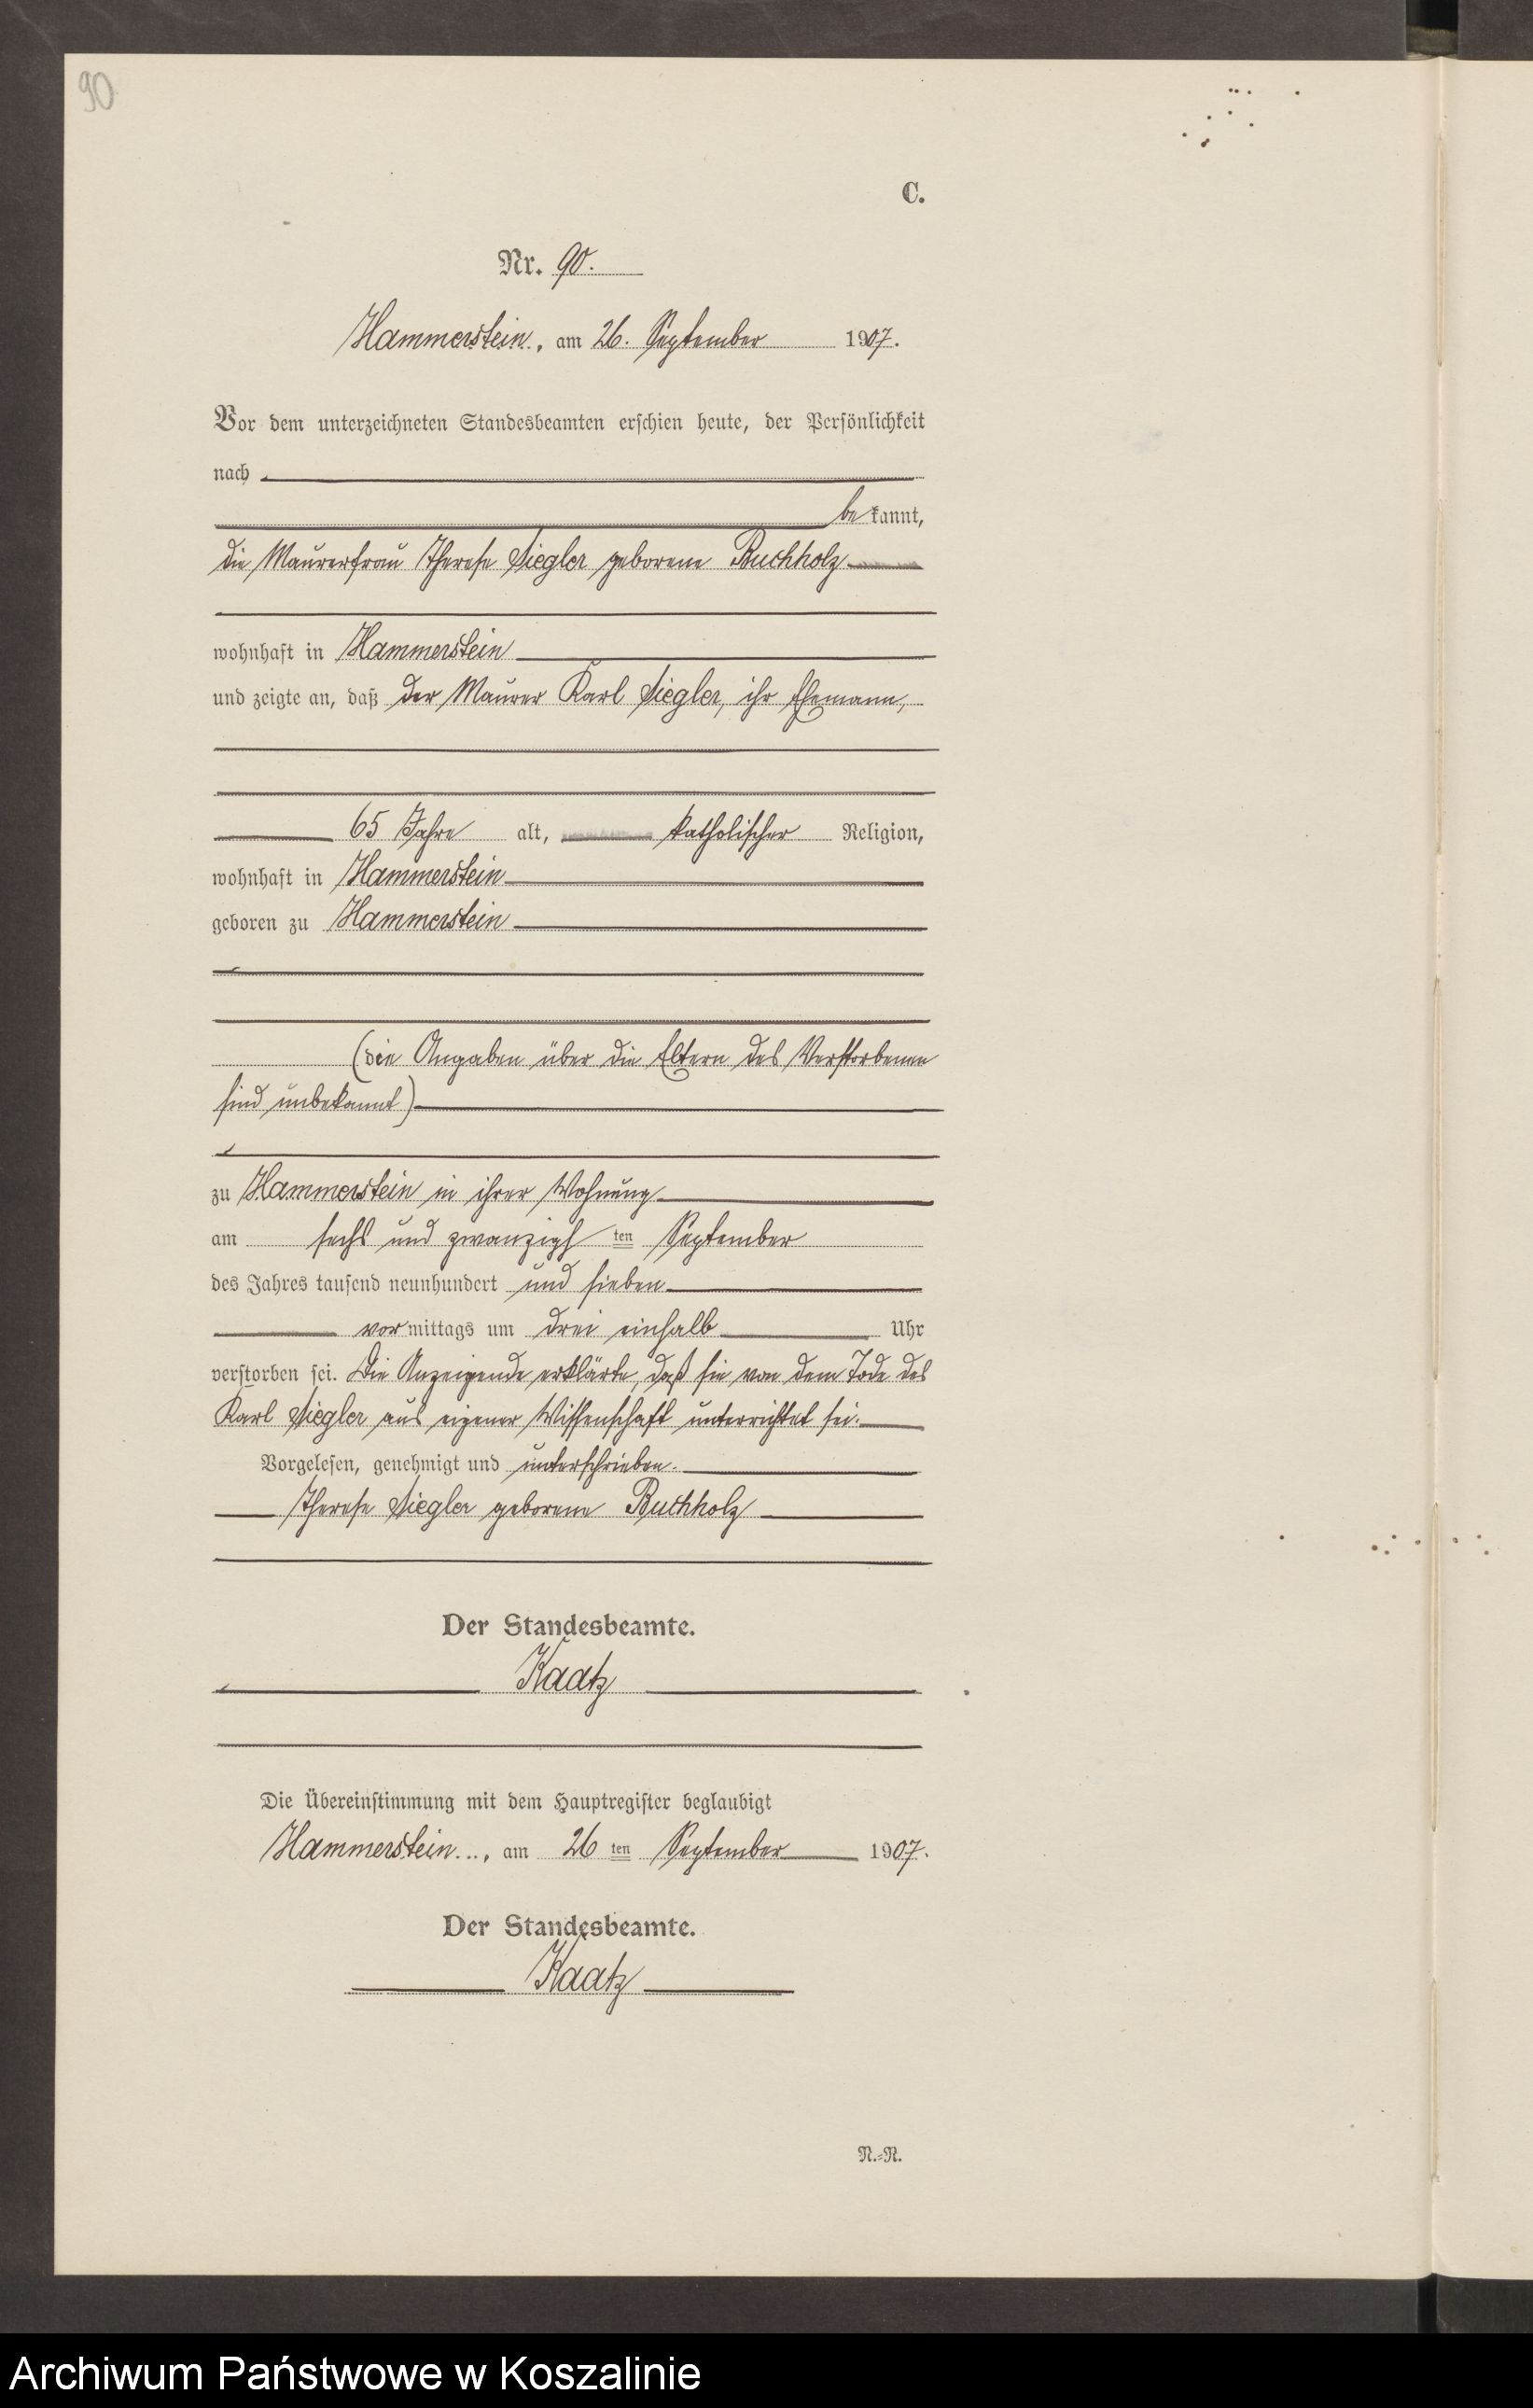 90
C.
Nr. 90.
Hammerstein, am 26. September 1907.
Vor dem unterzeichneten Standesbeamten erschien heute, der Persönlichkeit
nach
bekannt,
die Maurerfrau Therese Siegler geborene Buchholz
wohnhaft in Hammerstein
und zeigte an, daß der Maurer Karl Siegler, ihr Ehemann,
65 Jahre alt, katholischer Religion,
wohnhaft in Hammerstein
geboren zu Hammerstein
(die Angaben über die Eltern des Verstorbenen
sind unbekannt)
zu Hammerstein in ihrer Wohnung
am sechs und zwanzigsten September
des Jahres tausend neunhundert und sieben
vormittags um drei einhalb Uhr
verstorben sei. Die Anzeigende erklärte, daß sie von dem Tode des
Karl Siegler aus eigener Wissenschaft unterrichtet sei.
Vorgelesen, genehmigt und unterschrieben.
Therese Siegler geborene Buchholz
Der Standesbeamte.
Kaatz
Die Übereinstimmung mit dem Hauptregister beglaubigt
Hammerstein..., am 26ten September 1907.
Der Standesbeamte.
Kaatz
N.=R.
Archiwum Państwowe w Koszalinie